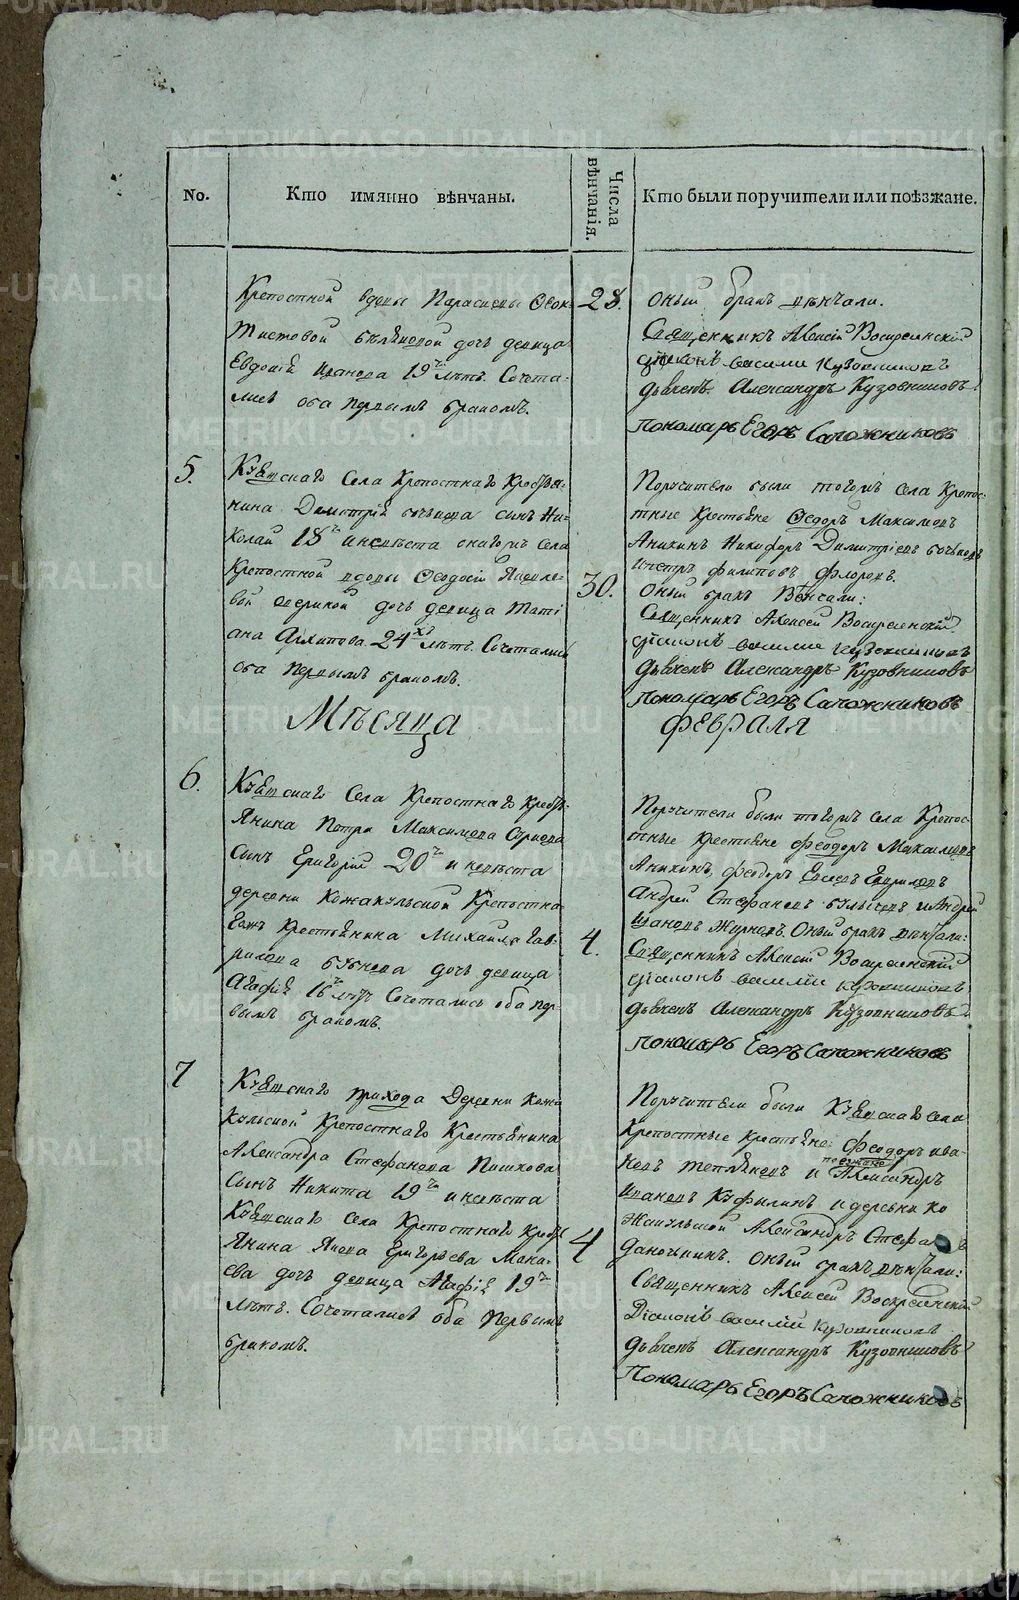 No.
Кто имянно вѣнчаны.
Числа вѣнчанія.
Кто были поручители или поѣзжане.
Крепостной вдовы Параскевы Ѳеок-
тистовой дочь девица
Евдокія Иванова 19ть лѣтъ. Сочета-
лись оба первымъ бракомъ.
28.
Оный бракъ вѣнчали.
Священникъ Алексій Воскресенскій
діаконъ василий Кузовниковъ
дьячекъ Александръ Кузовниковъ
пономарь Егоръ Сапожниковъ
5.
села Крепостнаго Кресть-
нина Димитрія сынъ Ни-
колай 18ть и невѣста онагожъ села
Крепостной вдовы Ѳеодосіи Яковле-
вой дочь девица Тати
ана Архипова 24хъ лѣтъ. Сочетались
оба первымъ бракомъ.
30.
Поручители были тогожъ села Крепос-
тные Крестьяне Ѳедоръ Максимовъ
Аникинъ Никифоръ Димитріевъ
и петръ филиповъ фроловъ.
Оный бракъ Венчали:
Священникъ Алексей Воскресенскій
діаконъ василие Кузовниковъ
дьячекъ Александръ Кузовниковъ
пономарь Егоръ Сапожниковъ
Мѣсяца
ФЕВРАЛЯ
6.
села Крепостнаго Кресть-
янина Петра Максимова
сынъ Григорій 20ть и невѣста
деревни Кожакульской Крепостна-
гожъ Крестьянина Михайла Гав-
рилова дочь девица
Агафія 16ть лѣтъ Сочетались оба пер-
вымъ бракомъ.
4.
Поручители были тогожъ села Крепос-
тные крестьяне феодоръ Максимовъ
Аникинъ, феодоръ
Андрей Стефановъ и Андрей
Оный бракъ вѣнчали:
Священникъ Алексій Воскресенскій
діаконъ василий Кузовниковъ
дьячекъ Александръ Кузовниковъ
пономарь Егоръ Сапожниковъ
7
прихода Деревни Кожа
кульской Крепостнаго Крестьянина
Александра Стефанова Пискова
сынъ Никита 19ть и невѣста
села Крепостнаго Кресть
янина Якова Григорьева Мака-
ева дочь девица Агафія 19ть
лѣтъ. Сочетались оба первымъ
бракомъ.
4
Поручители были села
Крепостные крестьяне: Феодоръ ива-
новъ и Александръ
Ивановъ и деревни Ко
жакульской Александръ
Оный бракъ вѣнчали:
Священникъ Алексей Воскресенский
Діаконъ василий Кузовниковъ
дьячекъ Александръ Кузовниковъ
Пономарь Егоръ Сапожниковъ
METRIKI.GASO-URAL.RU